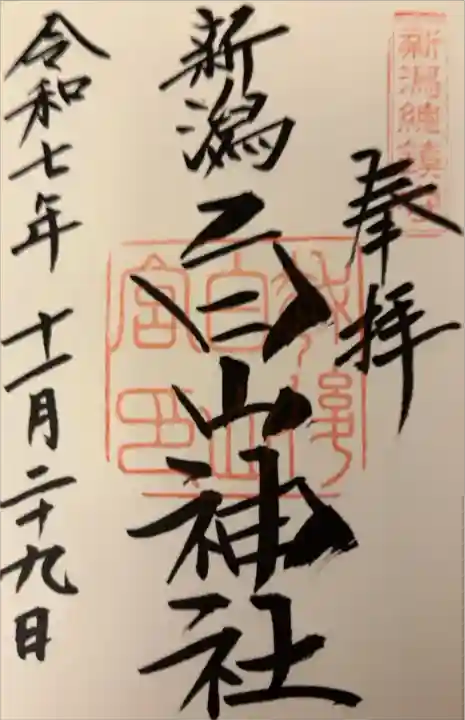 新潟總鎮守
奉拝
新潟白山神社
白山
宮印
令和七年 十一月二十九日